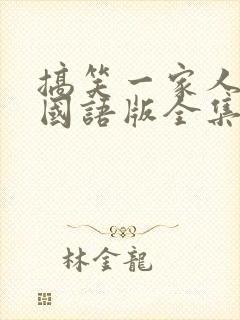 搞笑一家人
國語版全集
林金龍